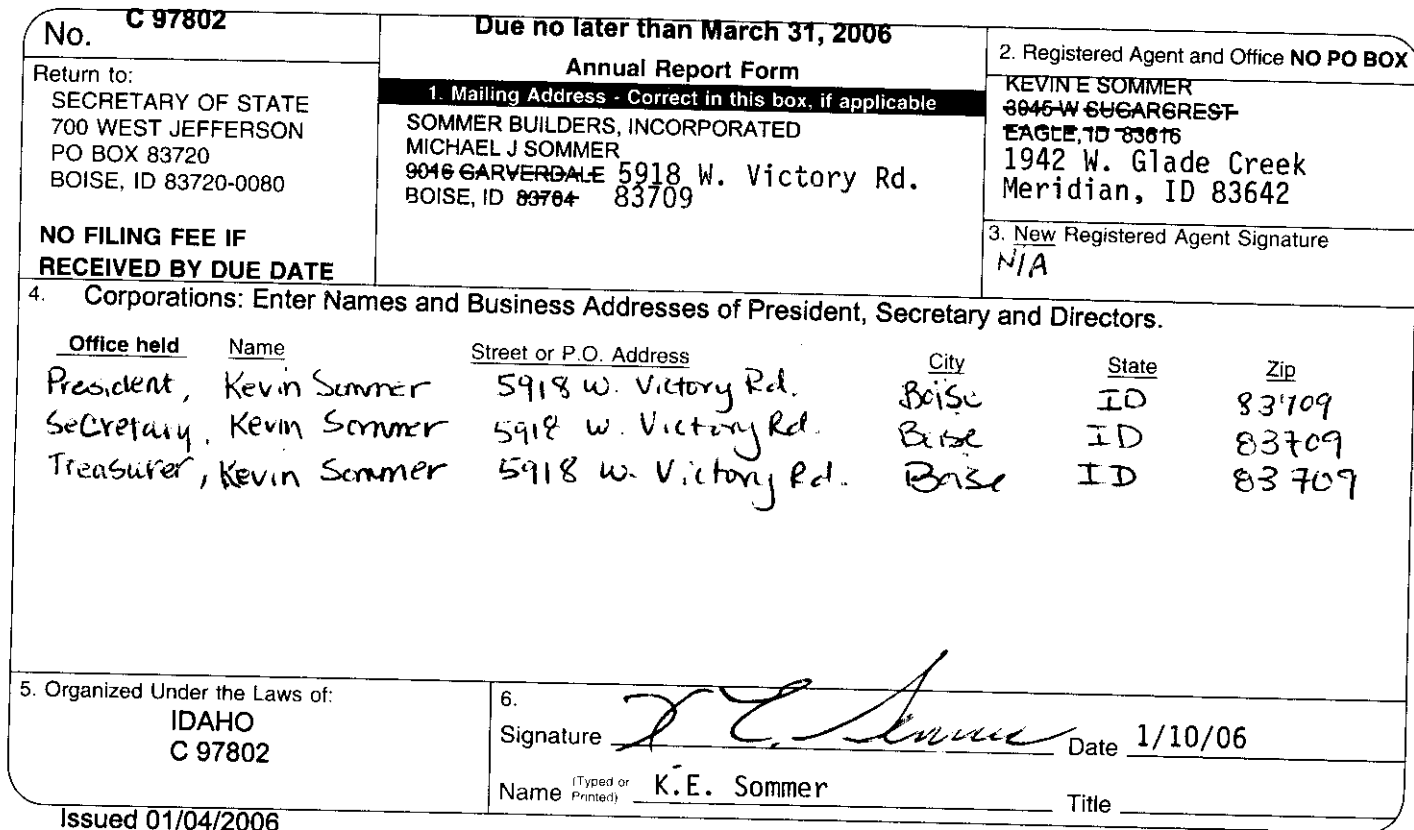 No. C 97802
Return to:
SECRETARY OF STATE
700 WEST JEFFERSON
PO BOX 83720
BOISE, ID 83720-0080
NO FILING FEE IF
RECEIVED BY DUE DATE
Due no later than March 31, 2006
Annual Report Form
1. Mailing Address - Correct in this box, if applicable
SOMMER BUILDERS, INCORPORATED
MICHAEL J SOMMER
9046 GARVERDALE 5918 W. Victory Rd.
BOISE, ID 83704 83709
2. Registered Agent and Office NO PO BOX
KEVIN E SOMMER
3045 W SUGARCREST
EAGLE, ID 83616
1942 W. Glade Creek
Meridian, ID 83642
3. New Registered Agent Signature
N/A
4. Corporations: Enter Names and Business Addresses of President, Secretary and Directors.
Office held Name Street or P.O. Address City State Zip
President, Kevin Sommer 5918 W. Victory Rd. Boise ID 83709
Secretary, Kevin Sommer 5918 W. Victory Rd. Boise ID 83709
Treasurer, Kevin Sommer 5918 W. Victory Rd. Boise ID 83709
5. Organized Under the Laws of:
IDAHO
C 97802
6.
Signature K E Sommer Date 1/10/06
Name (Typed or Printed) K.E. Sommer Title
Issued 01/04/2006